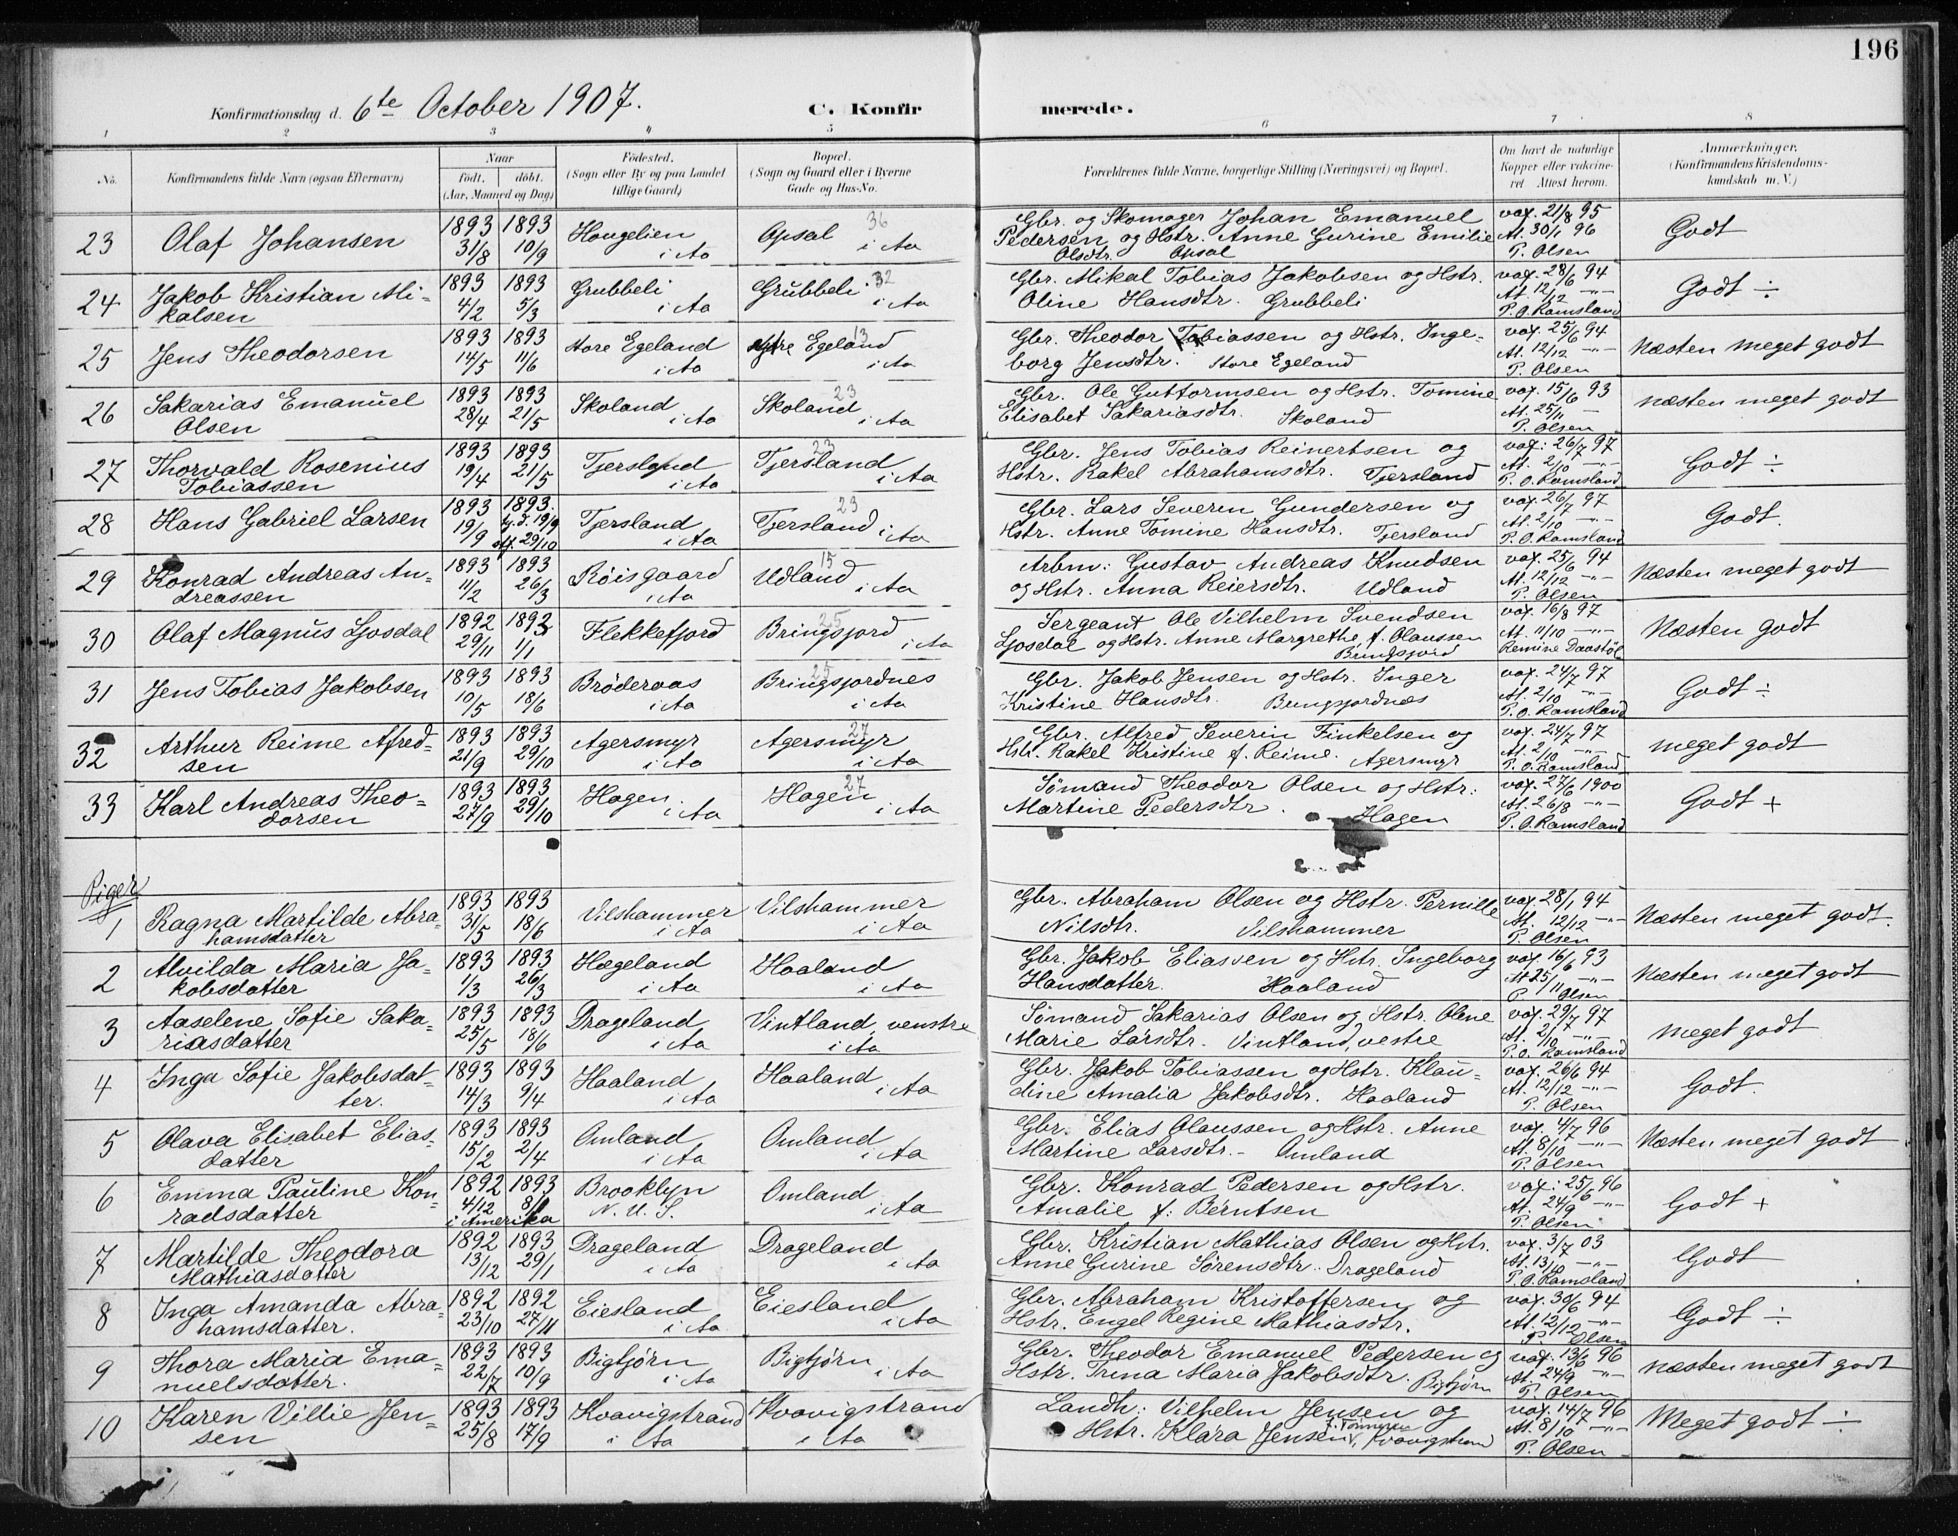 196
Konfirmationsdag d. 6te October 1907.
C. Konfir merede.
1 2 3 4 5 6 7 8
No. Konfirmandens fulde Navn (ogsaa Efternavn) Naar født. døbt. (Aar, Maaned og Dag) Fødested. (Sogn eller By og paa Landet tillige Gaard) Bopæl. (Sogn og Gaard eller i Byerne Gade og Hus-No. Forældrenes fulde Navne, borgerlige Stilling (Næringsvei) og Bopæl. Om havt de naturlige Kopper eller vakcineret. Attest herom. Anmærkninger. (Konfirmandens Kristendomskundskab m. V.)
23 Olaf Johansen 1893 31/8 1893 10/9 Hougelien i Aa Opsal 36 i Aa Gbr. og Skomager Johan Emanuel Pedersen og Hstr. Anne Gurine Emilie Olsdtr. Opsal vax. 21/8 95 At. 30/1 96 P. Olsen Godt
24 Jakob Kristian Mikalsen 1893 4/2 1893 5/3 Grubbeli i Aa Grubbeli 32 i Aa Gbr. Mikal Tobias Jakobsen og Hstr. Oline Hansdtr. Grubbeli vax. 28/6 94 At. 12/12 -"- P. O. Ramsland Godt ÷
25 Jens Theodorsen 1893 14/5 1893 11/6 Store Egeland i Aa Egeland 13 i Aa Gbr. Theodor Tobiassen og Hstr. Ingeborg Jensdtr. Store Egeland vax. 25/6 94 At. 12/12 -"- P. Olsen Næsten meget godt
26 Sakarias Emanuel Olsen 1893 28/4 1893 21/5 Skoland i Aa Skoland 23 i Aa Gbr. Ole Guttormsen og Hstr. Tomine Elisabet Sakariasdtr. Skoland vax. 15/6 93 At. 25/11 - P. Olsen næsten meget godt
27 Thorvald Rosenius Tobiassen 1893 19/4 1893 21/5 Tjersland i Aa Tjersland 23 i Aa Gbr. Jens Tobias Reinertsen og Hstr. Rakel Abrahamsdtr. Tjersland vax: 26/7 97 At. 2/10 -"- P. O. Ramsland Godt ÷
28 Hans Gabriel Larsen 1893 19/9 1893. hj.d. 19/9 st. 29/10 Tjersland i Aa Tjersland 23 i Aa Gbr. Lars Severin Gundersen og Hstr. Anne Tomine Hansdtr. Tjersland vax. 26/7 97 At. 2/10 -"- P. O. Ramsland Godt.
29 Konrad Andreas Andreassen 1893 11/2 1893 26/3 Røisgaard i Aa Udland 15 i Aa Arbm: Gustav Andreas Knudsen og Hstr. Anna Reiersdtr. Udland vax. 25/6 94 At. 12/12 -"- P. Olsen Næsten meget godt
30 Olaf Magnus Ljosdal 1892 29/11 1893 1/1 Flekkefjord Bringsjord 25 i Aa Sergeant Ole Vilhelm Svendsen Ljosdal og Hstr. Anne Margrethe f. Olaussen Bringsjord vax. 16/8 97 At. 11/10 -"- Remine Daastøl Næsten godt
31 Jens Tobias Jakobsen 1893 10/5 1893 18/6 Brøderaas i Aa Bringsjordnes 25 i Aa Gbr. Jakob Jensen og Hstr. Inger Kristine Hansdtr. Bringsjordnæs vax. 24/7 97 At. 2/10 -"- P. O. Ramsland Godt ÷
32 Arthur Reime Afredsen 1893 21/9 1893 29/10 Agersmyr i Aa Agersmyr 27 i Aa Gbr. Alfred Severin Finkelsen og Hstr. Rakel Kristine f. Reime. Agersmyr vax. 24/7 97 At. 2/10 -"- P. O. Ramsland meget godt
33 Karl Andreas Theodorsen 1893 27/9 1893 29/10 Hagen i Aa Hagen 27 i Aa Sømand Theodor Olsen og Hstr: Martine Pedersdtr. Hagen vax. 27/6 1900 At. 26/8 -"- P. O. Ramsland Godt +
Piger
1 Ragna Martilde Abrahamsdatter 1893 31/5 1893 18/6 Vilshammer i Aa Vilshammer i Aa Gbr. Abraham Olsen og Hstr. Pernille Nilsdtr. Vilshammer vax. 28/1 94 At. 12/12 -"- P. Olsen Næsten meget godt.
2 Alvilda Maria Jakobsdatter 1893 1/3 1893 26/3 Hægeland i Aa Haaland i Aa Gbr. Jakob Eliassen og Hstr. Ingeborg Hansdatter. Haaland vax. 16/6 93 At. 25/11 -"- P. Olsen Næsten meget godt
3 Aaselene Sofie Sakariasdatter 1893 25/5 1893 18/6 Drageland i Aa Vintland, venstre i Aa Sømand Sakarias Olsen og Hstr. Olene Marie Larsdtr. Vintland, vestre vax. 29/7 97 At. 2/10 -"- P. O. Ramsland meget godt
4 Inga Sofie Jakobsdatter. 1893 14/3 1893 9/4 Haaland i Aa Haaland i Aa Gbr. Jakob Tobiassen og Hstr. Klaudine Amalia Jakobsdtr. Haaland vax. 26/6 94 At. 12/12 -"- P. Olsen Godt.
5 Olava Elisabet Eliasdatter 1893 15/2 1893 2/4 Omland i Aa Omland i Aa Gbr. Elias Olaussen og Hstr. Anne Martine Larsdtr. - Omland vax. 4/7 96 At. 8/10 -"- P. Olsen Næsten meget godt
6 Emma Pauline Konradsdatter 1892 4/12 1893 8/1 i Amerika Brooklyn N. U. S. Omland i Aa Gbr. Konrad Pedersen og Hstr. Amalie f: Berntsen vax: 25/6 96 At. 24/9 -"- P. Olsen Godt +
7 Martilde Theodora Mathiasdatter 1892 13/12 1893 29/1 Drageland i Aa Drageland i Aa Gbr. Kristian Mathias Olsen og Hstr. Anne Gurine Sørensdtr. Drageland vax. 3/7 03 At. 13/10 -"- P. O. Ramsland Godt
8 Inga Amanda Abrahamsdatter. 1892 23/10 1892 27/11 Eiesland i Aa Eiesland i Aa Gbr. Abraham Kristoffersen og Hstr. Engel Regine Mathiasdtr. vax. 30/6 94 At. 12/12 -"- P. Olsen Godt ÷
9 Thora Maria Emanuelsdatter. 1893 22/7 1893 10/9 Bigtjørn i Aa Bigtjørn i Aa Gbr. Theodor Emanuel Pedersen og Hstr. Trina Maria Jakobsdtr. Bigtjørn vax. 13/6 96 At. 24/9 -"- P. Olsen næsten meget godt
10 Karen Villie Jensen 1893 25/8 1893 17/9 Kvavigstrand i Aa Kvavigstrand i Aa Landh: Vilhelm Jensen og Hstr. Klara Jensen, Kvavigstrand vax. 14/7 96 At. 8/10 -"- P. Olsen Meget godt ÷